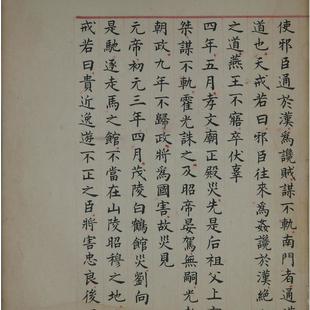 使邪臣通於漢爲讒賊謀不軌南門者通
道也天戒若曰邪臣往來爲姦讒於漢絕
之道燕王不寤卒伏辜
四年五月孝文廟正殿災先是后祖父上
桀謀不軌霍光誅之及昭帝晏駕無嗣光
朝政九年不歸政將爲國害故災見
元帝初元三年四月茂陵白鶴館災劉向
是馳逐走馬之館不當在山陵昭穆之地
戒若曰貴近逸遊不正之臣將害忠良後